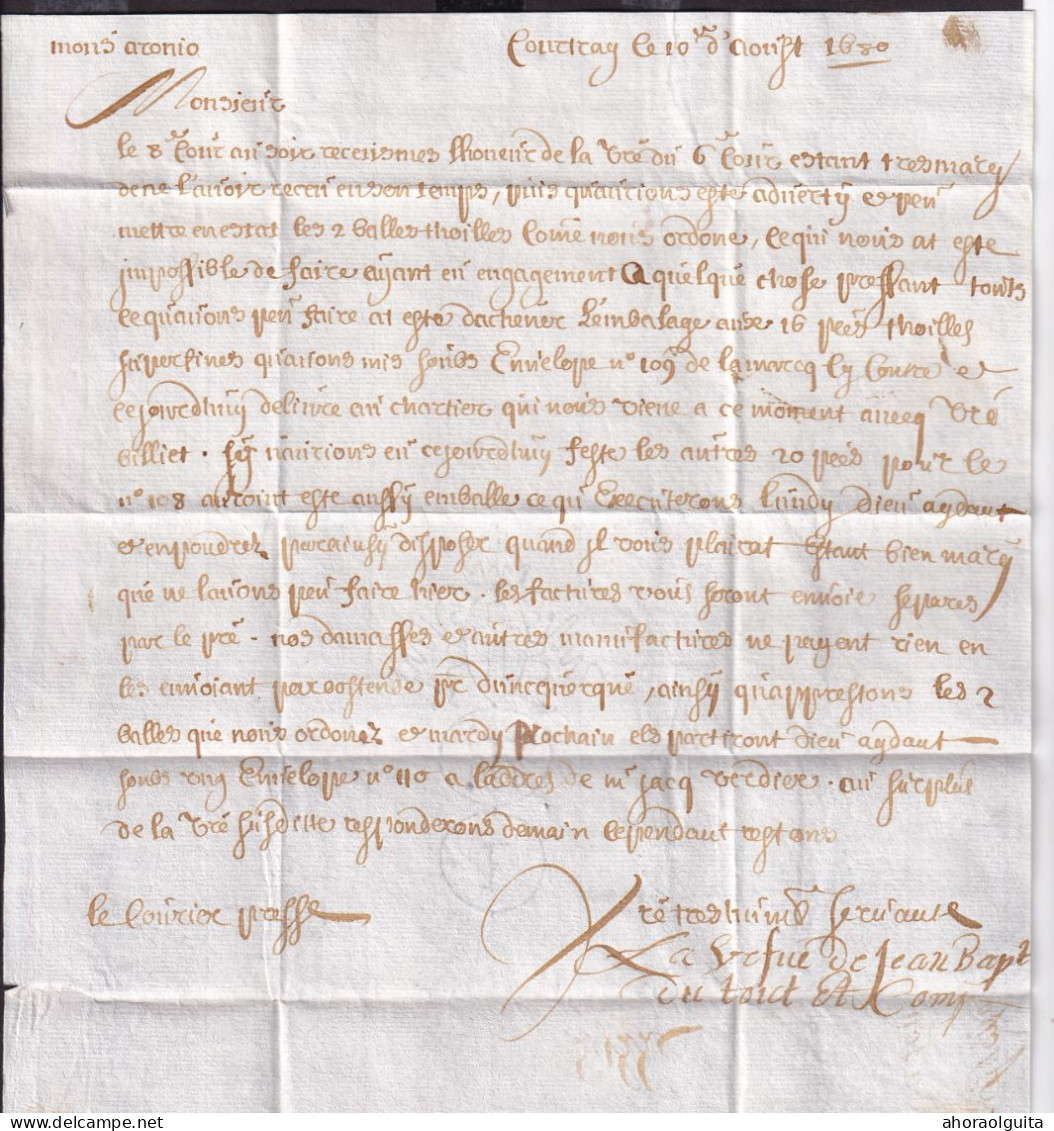 mons aronio Courtray le 10e d'Aoust 1680
Monsieur
le 8e Cour au soir receusmes lhoneur de la Vre du 6e Cour estant tres marry
de ne lavoir receu en son temps, puis qu'aurions esté adverty et peu
mettre en estat les 2 balles thoilles Come nous ordone, Ce qui nous at esté
impossible de faire ayant eu engagement a quelque chose pressant touts
Ce qu'avons peu faire at esté d'achever L'embalage aux 16 pees thoilles
superfines qu'avons mis soubs Envelope n° 109 de la marcq Cy Contre et
Ce jourdhuy delivré au chartier qui nous viene a ce moment avecq Vre
billiet. sy n'aurions eu ce jourdhuy feste les autres 20 pees pour le
n° 108 auroint esté aussy emballe ce qu'Executerons Lundy Dieu aydant
et en poudrez par ainsy disposer quand il vous plairat Estant bien marry
que ne lavons peu faire hier. les factures vous seront envoié separes
par le pre. nos damasses et autres manufactures ne payent rien en
les envoiant par oostende pr duncquerque, ainsy qu'apprestons les 2
balles que nous ordonez et mardy prochain els partiront Dieu aydant
soubs ung Envelope n° 110 a l'adres de mr jacq verdier. au surplus
de la Vre susditte responderons demain Cependant restons
le Courier presse Vre tres humb servante
La Vefue de Jean Bapt
du toict Et Comp
ahoraolguita